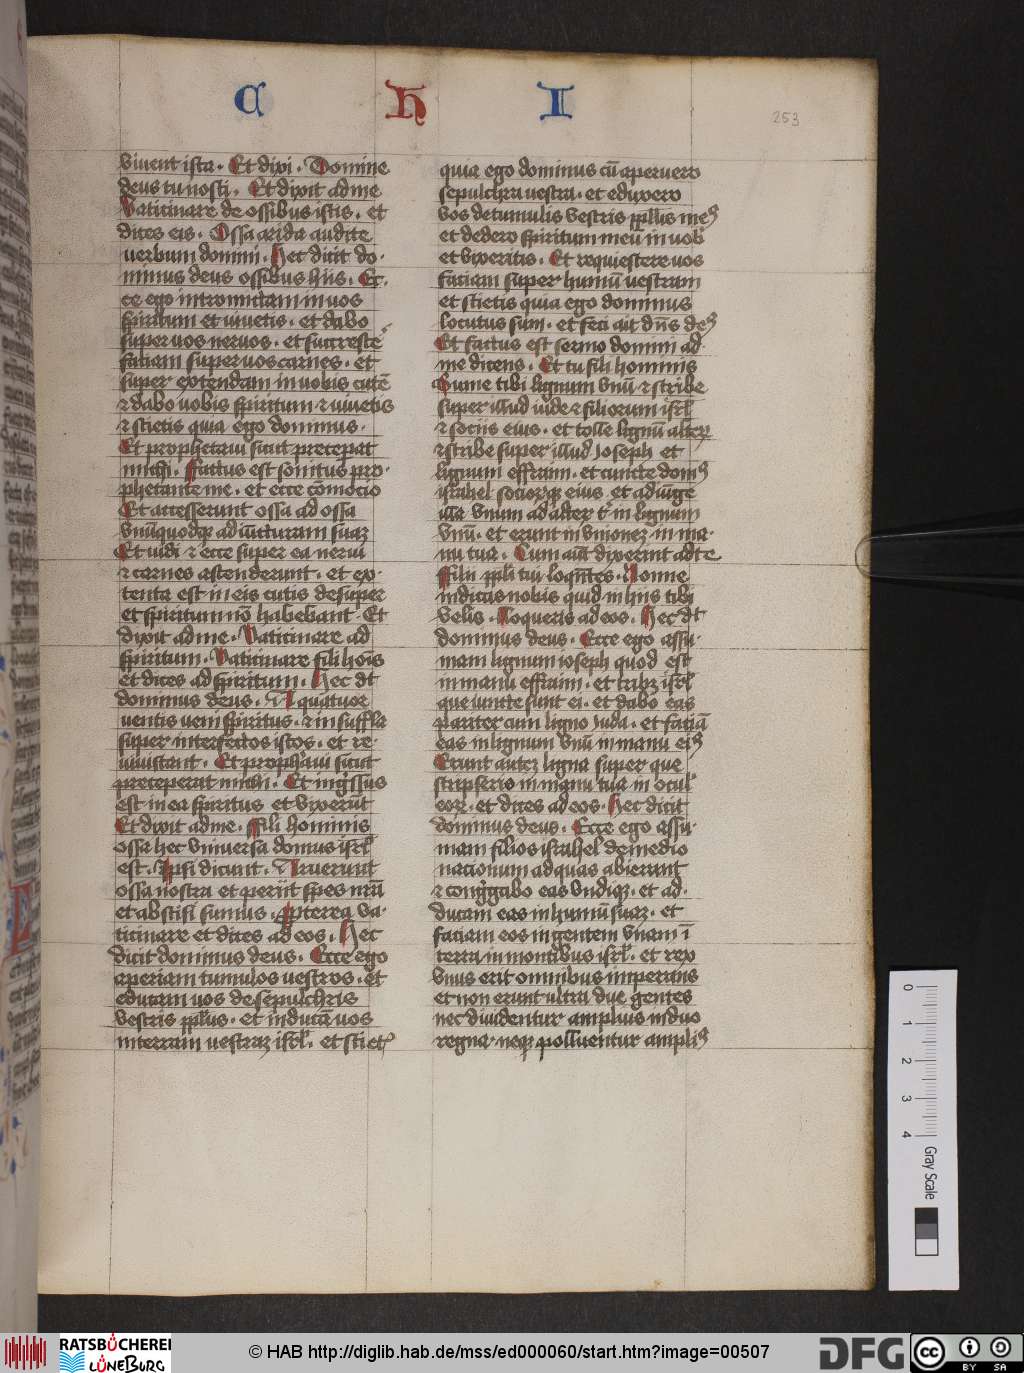 C H I
253
vivent ista. Et dixi. Domine
deus tu nosti. Et dixit ad me
Vaticinare de ossibus istis. et
dices eis. Ossa arida audite
verbum domini. Hec dicit do-
minus deus ossibus hiis. Ec-
ce ego intromittam in vos
spiritum et vivetis. et dabo
super vos nervos. et succrescē
faciam super vos carnes. et
super extendam in vobis cutē
⁊ dabo vobis spiritum ⁊ vivetis
⁊ scietis quia ego dominus.
Et prophetavi sicut preceperat
michi. Factus est sonitus pro-
phetante me. et ecce cōmocio
Et accesserunt ossa ad ossa
vnūquodqꝫ ad iūcturam suaꝫ
Et vidi ⁊ ecce super ea nervi
⁊ carnes ascenderunt. et ex-
tenta est in eis cutis desuper
et spiritum nō habebant. Et
dixit ad me. Vaticinare ad
spiritum. Vaticinare fili hoīs
et dices ad spiritum. Hec dt
dominus deus. A quatuor
ventis veni spiritus. ⁊ insuffla
super interfectos istos. et re-
viviscant. Et prophavi sicut
preceperat michi. Et ingressus
est in ea spiritus et vixerūt
Et dixit ad me. Fili hominis
ossa hec vniversa domus isrl
est. Ipsi dicunt. Aruerunt
ossa nostra et periit spes nrā
et abscisi sumus. Pterea va-
ticinare et dices ad eos. Hec
dicit dominus deus. Ecce ego
aperiam tumulos vestros. et
educam vos de sepulchris
vestris pplus. et inducā vos
in terram vestraꝫ isrl. et sciet
quia ego dominus cū aperuero
sepulchra vestra. et eduxero
vos de tumulis vestris pplus meꝰ
et dedero spiritum meū in vob
et vixeritis. Et requiescere vos
faciam super humū vestram
et scietis quia ego dominus
locutus sum. et feci ait dn̄s deꝰ
Et factus est sermo domini ad
me dicens. Et tu fili hominis
Sume tibi lignum vnū ⁊ scribe
super illud iude ⁊ filiorum isrl
⁊ sociis eius. et tolle lignū alterꝝ
⁊ scribe super illud Joseph et
lignum effraim. et cuncte domꝰ
israhel sociorꝫqꝫ eius et adiūge
illa vnum ad alterꝝ t̄ in lignum
vnū. et erunt in vnionez in ma-
nu tua. Cum aūt dixerint ad te
Filii ppli tui loqn̄tes. Nonne
indicas nobis quid in hiis tibi
velis. Loqueris ad eos. Hec dt
dominus deus. Ecce ego assu-
mam lignum ioseph quod est
in manu effraim. et tribꝫ isrl
que iuncte sunt ei. et dabo eas
pariter cum ligno Juda. et faciā
eas in lignum vnū in manu eiꝰ
Erunt autez ligna super que
scripseris in manu tua in ocul
eorꝫ. et dices ad eos. Hec dicit
dominus deus. Ecce ego assu-
mam filios israhel de medio
nacionum ad quas abierunt
⁊ congregabo eas vndiqꝫ. et ad-
ducam eas in humū suaꝫ. et
faciam eos in gentem vnam ī
terra in montibus isrl. et rex
vnus erit omnibus imperans
et non erunt ultra due gentes
nec dividentur amplius in duo
regna. neqꝫ polluentur ampliꝰ
0 1 2 3 4
Gray Scale
RATSBÜCHEREI
LÜNEBURG
© HAB http://diglib.hab.de/mss/ed000060/start.htm?image=00507
DFG
cc BY SA